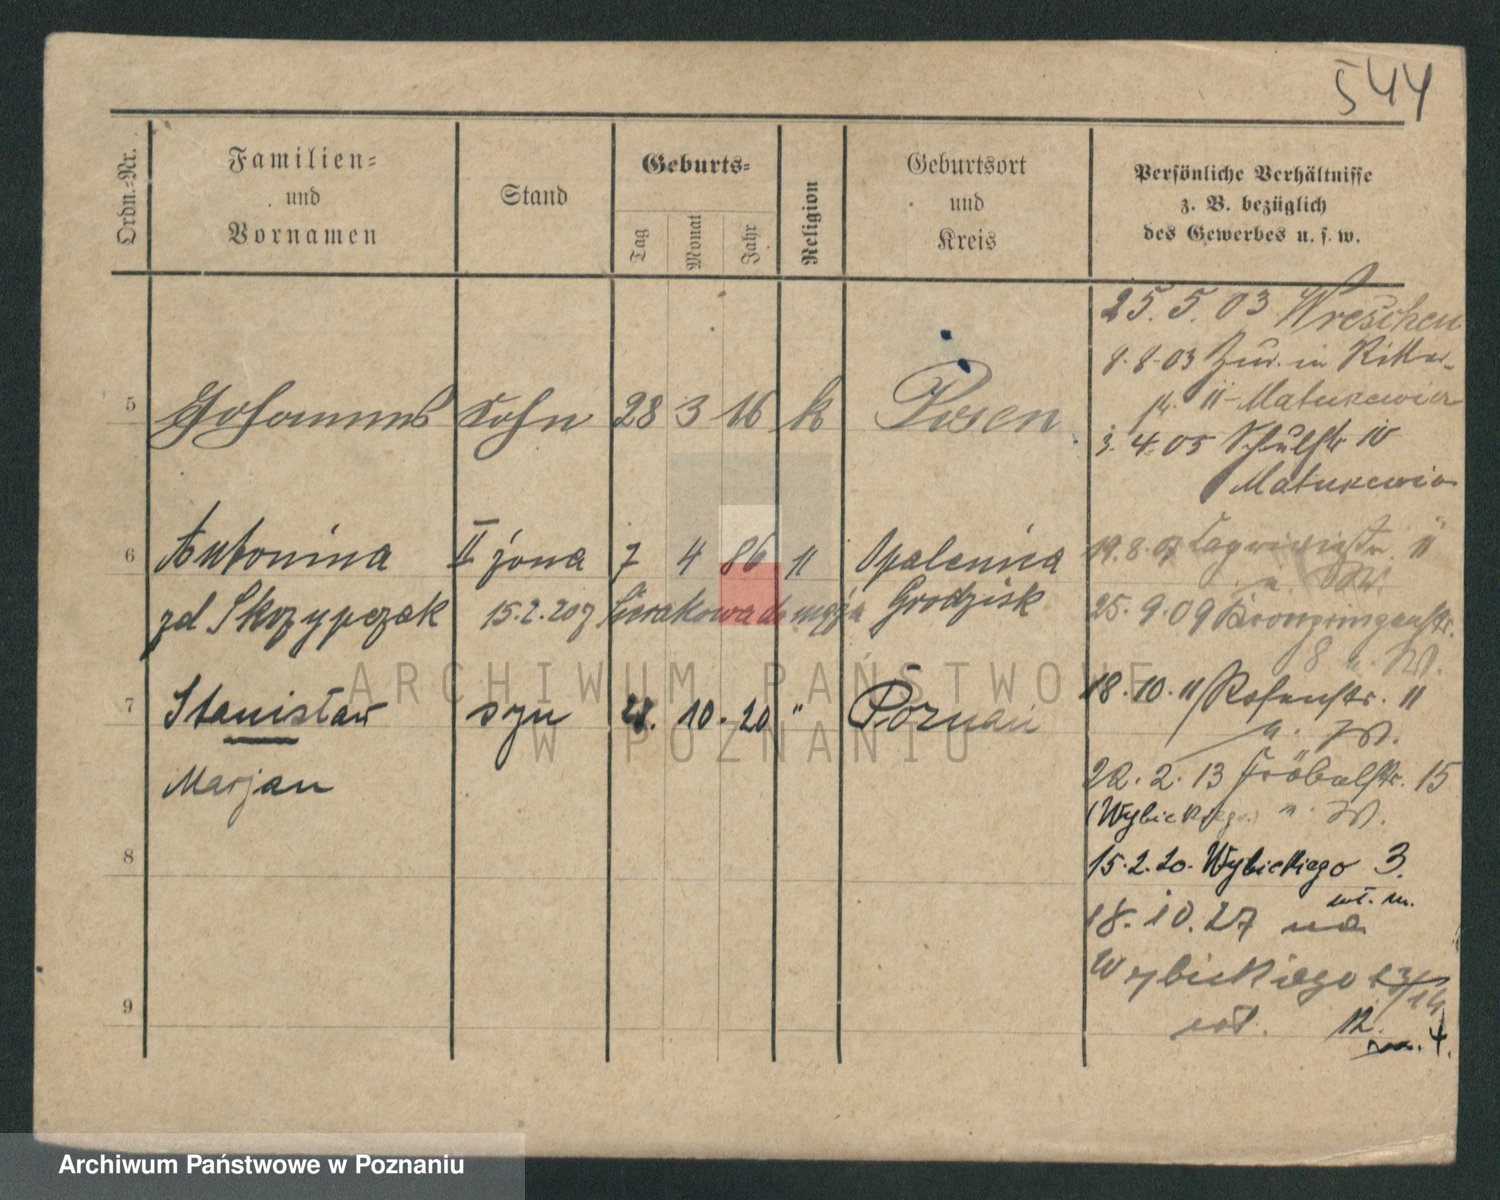 544
Ordn.-Nr.
Familien-
und
Vornamen
Stand
Geburts-
Tag
Monat
Jahr
Religion
Geburtsort
und
Kreis
Persönliche Verhältnisse
z. B. bezüglich
des Gewerbes u. s. w.
5 Johannes Sohn 28 3 16 k Posen
6 Antonina II żona 7 4 86 " Opalenica
zd Skrzypczak 15.2.207 Sierakowa do męża Grodzisk
7 Stanisław syn 28. 10. 20 " Poznań
Marjan
8
9
25. 5. 03 Wreschen
9.8.03 Zur. in Ritter-
11 Matuszewicz
3. 4. 05 Schulstr 10
Matuszewicz
19. 8. 07 11
u. W.
25. 9. 09 Kronprinzenstr.
8 u. W.
18. 10. 11 Rosenstr. 11
u. W.
22. 2. 13 Fröbelstr. 15
(Wybickiego) u. W.
15. 2. 20. Wybickiego 3.
wł. m.
18. 10. 27 na
Wybickiego
wł. 12.
m. 4.
ARCHIWUM PAŃSTWOWE
W POZNANIU
Archiwum Państwowe w Poznaniu